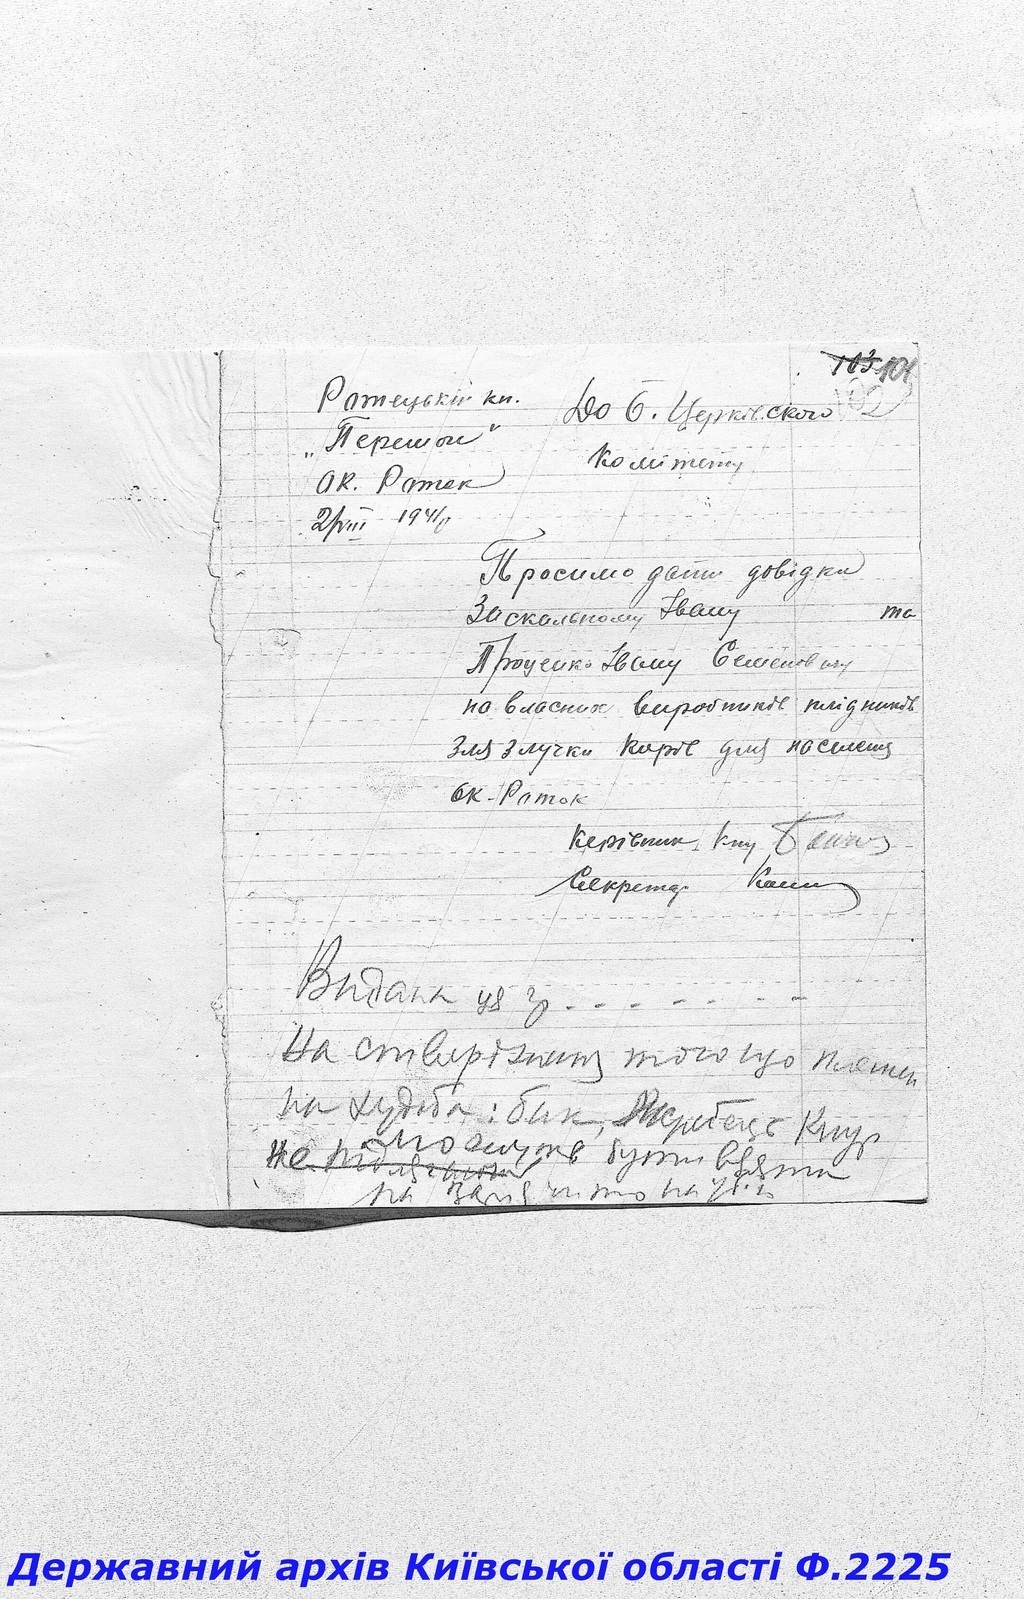 103 101
102
Ратецький кп.
"Перемог"
ок. Раток
2/VIII 1941 р
До Б. Церківского
Комітету
Просимо дати довідки
Заскальному Івану та
Проценко Івану Семеновичу
на власних виробників плідників
для злучки корів для населення
ок-Раток
Керівник кпу
Секретар
Видана ця гр. - - - - - - -
На ствердження того що племен
на худоба: бик, Жеребець Кнур
не підлягають
можуть бути взята
на
Державний архів Київської області Ф.2225